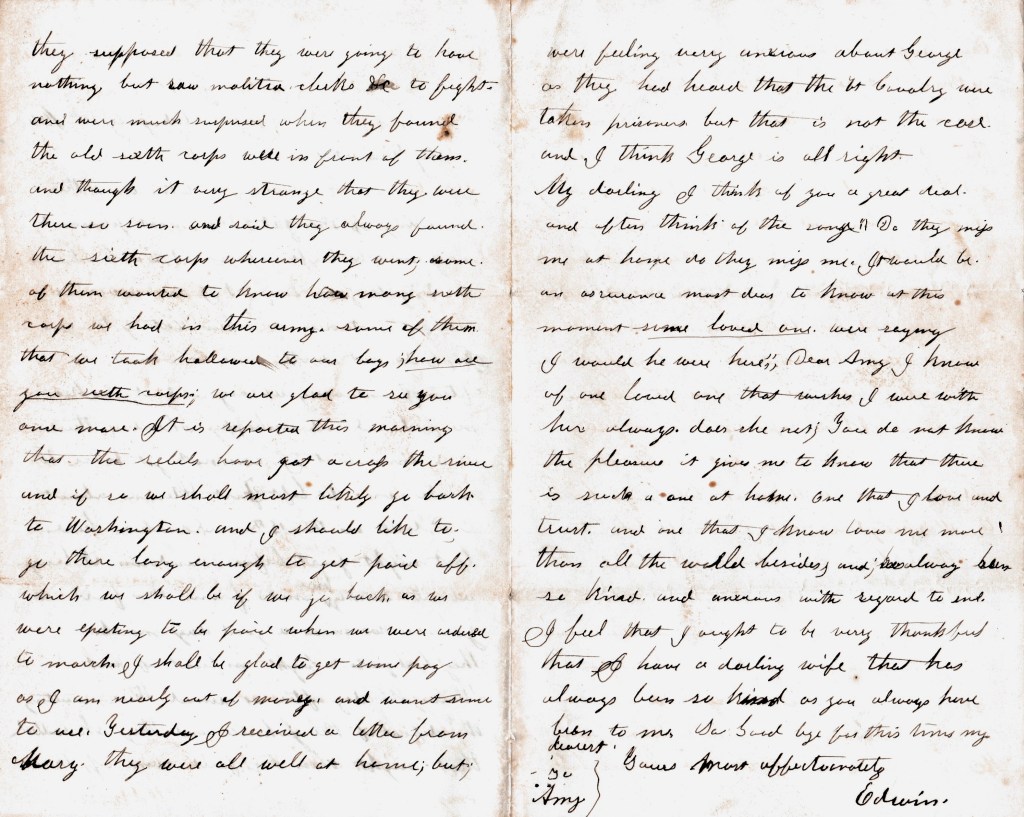 they supposed that they were going to have
nothing but raw malitia clerks &c to fight-
and were much suprised when they found
the old sixth corps were in front of them.
and though it very strange that they were
there so soon. and said they always found.
the sixth corps wherever they went, some.
of them wanted to know how many sixth
corps we had in this army. some of them
that we took hallowed to our boys; how are
you sixth corps; we are glad to see you
once more. It is reported this morning
that the rebels have got across the river
and if so we shall most likely go back
to Washington. and I should like to.
go there long enough to get paid off.
which we shall be if we go back as we
were epecting to be paid when we were ordered
to march. I shall be glad to get some pay
as I am nearly out of money. and want some
to use. Yesterday I received a letter from
Mary. they were all well at home; but;
were feeling very anxious about George
as they had heard that the 1st Cavalry were
taken prisoners. but that is not the case.
and I think George is all right-
My darling I think of you a great deal.
and often think of the song" Do they miss
me at home do they miss me. It would be.
an assurance most dear to know at this
moment some loved one. were saying
I would he were here"; Dear Amy I know
of one loved one that wishes I were with
her always. does she not; You do not know
the pleasure it gives me to know that there
is such a one at home. One that I love and
trust. and one that I know loves me more
than all the world besides; and; has alway been
so kind. and anxious with regard to me.
I feel that I ought to be very thankful
that I have a darling wife that has
always been so kind as you always have
been to me. So Good bye for this time my
dearest.
Yours most affectionately
To
Amy
Edwin.